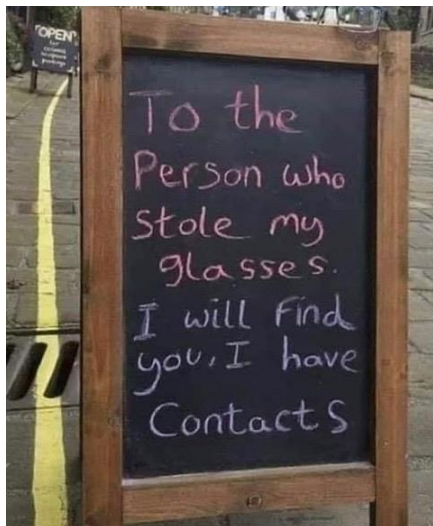 OPEN
for
To the
Person who
stole my
glasses.
I will Find
you, I have
Contacts